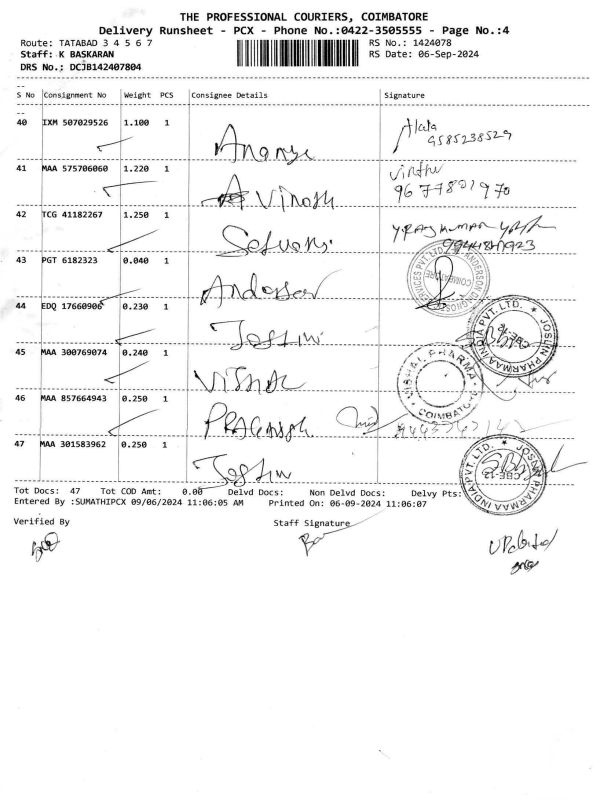 THE PROFESSIONAL COURIERS, COIMBATORE
Delivery Runsheet - PCX - Phone No.:0422-3505555 - Page No.:4
Route: TATABAD 3 4 5 6 7
RS No.: 1424078
Staff: K BASKARAN
RS Date: 06-Sep-2024
DRS No.: DCJB142407804
S No Consignment No Weight PCS Consignee Details Signature
40 IXM 507029526 1.100 1
41 MAA 575706060 1.220 1
Avinash
42 TCG 41182267 1.250 1
Y.RAJKUMAR
43 PGT 6182323 0.040 1
44 EDQ 17660906 0.230 1
JOSLIN PHARMAA INDIA PVT. LTD.
45 MAA 300769074 0.240 1
VISHAL PHARMA
COIMBATORE
46 MAA 857664943 0.250 1
47 MAA 301583962 0.250 1
JOSLIN PHARMAA INDIA PVT. LTD.
CBE-12
Tot Docs: 47 Tot COD Amt: 0.00 Delvd Docs: Non Delvd Docs: Delvy Pts:
Entered By :SUMATHIPCX 09/06/2024 11:06:05 AM Printed On: 06-09-2024 11:06:07
Verified By Staff Signature
Updated